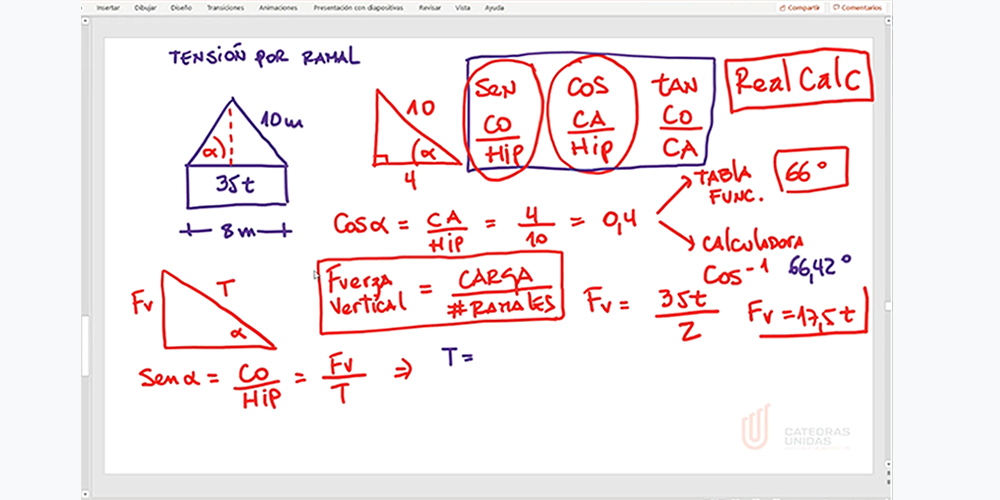 Insertar Dibujar Diseño Transiciones Animaciones Presentación con diapositivas Revisar Vista Ayuda Compartir Comentarios
TENSIÓN POR RAMAL
10m
α
35t
8m
10
α
4
SEN
CO
HiP
COS
CA
HiP
TAN
CO
CA
Real Calc
Cosα = CA/HiP = 4/10 = 0,4
TABLA
FUNC.
66°
CALCULADORA
Cos-1 66,42°
Fv
T
α
Fuerza
Vertical = CARGA/#RAMALES
Fv = 35t/2
Fv = 17,5t
Senα = CO/HiP = Fv/T ⇒ T =
CATEDRAS
UNIDAS